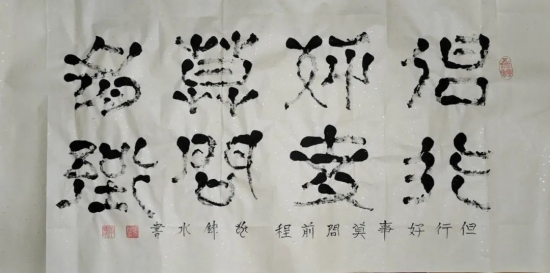 但行
好事
莫問
前程
但行好事莫問前程 錦水書